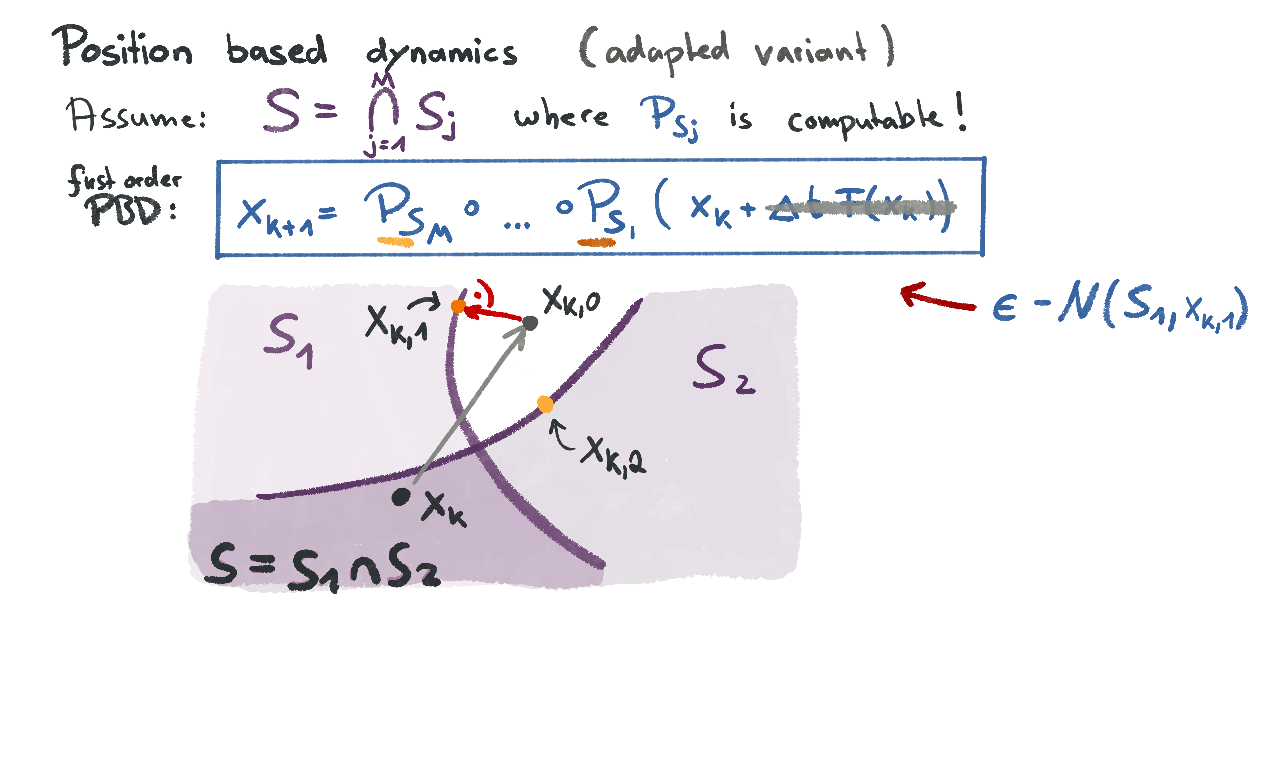 Position based dynamics (adapted variant)
Assume: S = ⋂_{j=1}^{M} S_j where P_{S_j} is computable!
first order
PBD: x_{k+1} = P_{S_M} ∘ ... ∘ P_{S_1} ( x_k +
x_{k,1} x_{k,0}
∈ -N(S_1, x_{k,1})
S_1
S_2
x_{k,2}
x_k
S = S_1 ∩ S_2